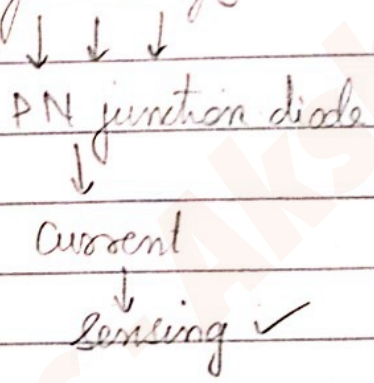 ↓ ↓ ↓
PN junction diode
↓
Current
↓
Sensing ✓